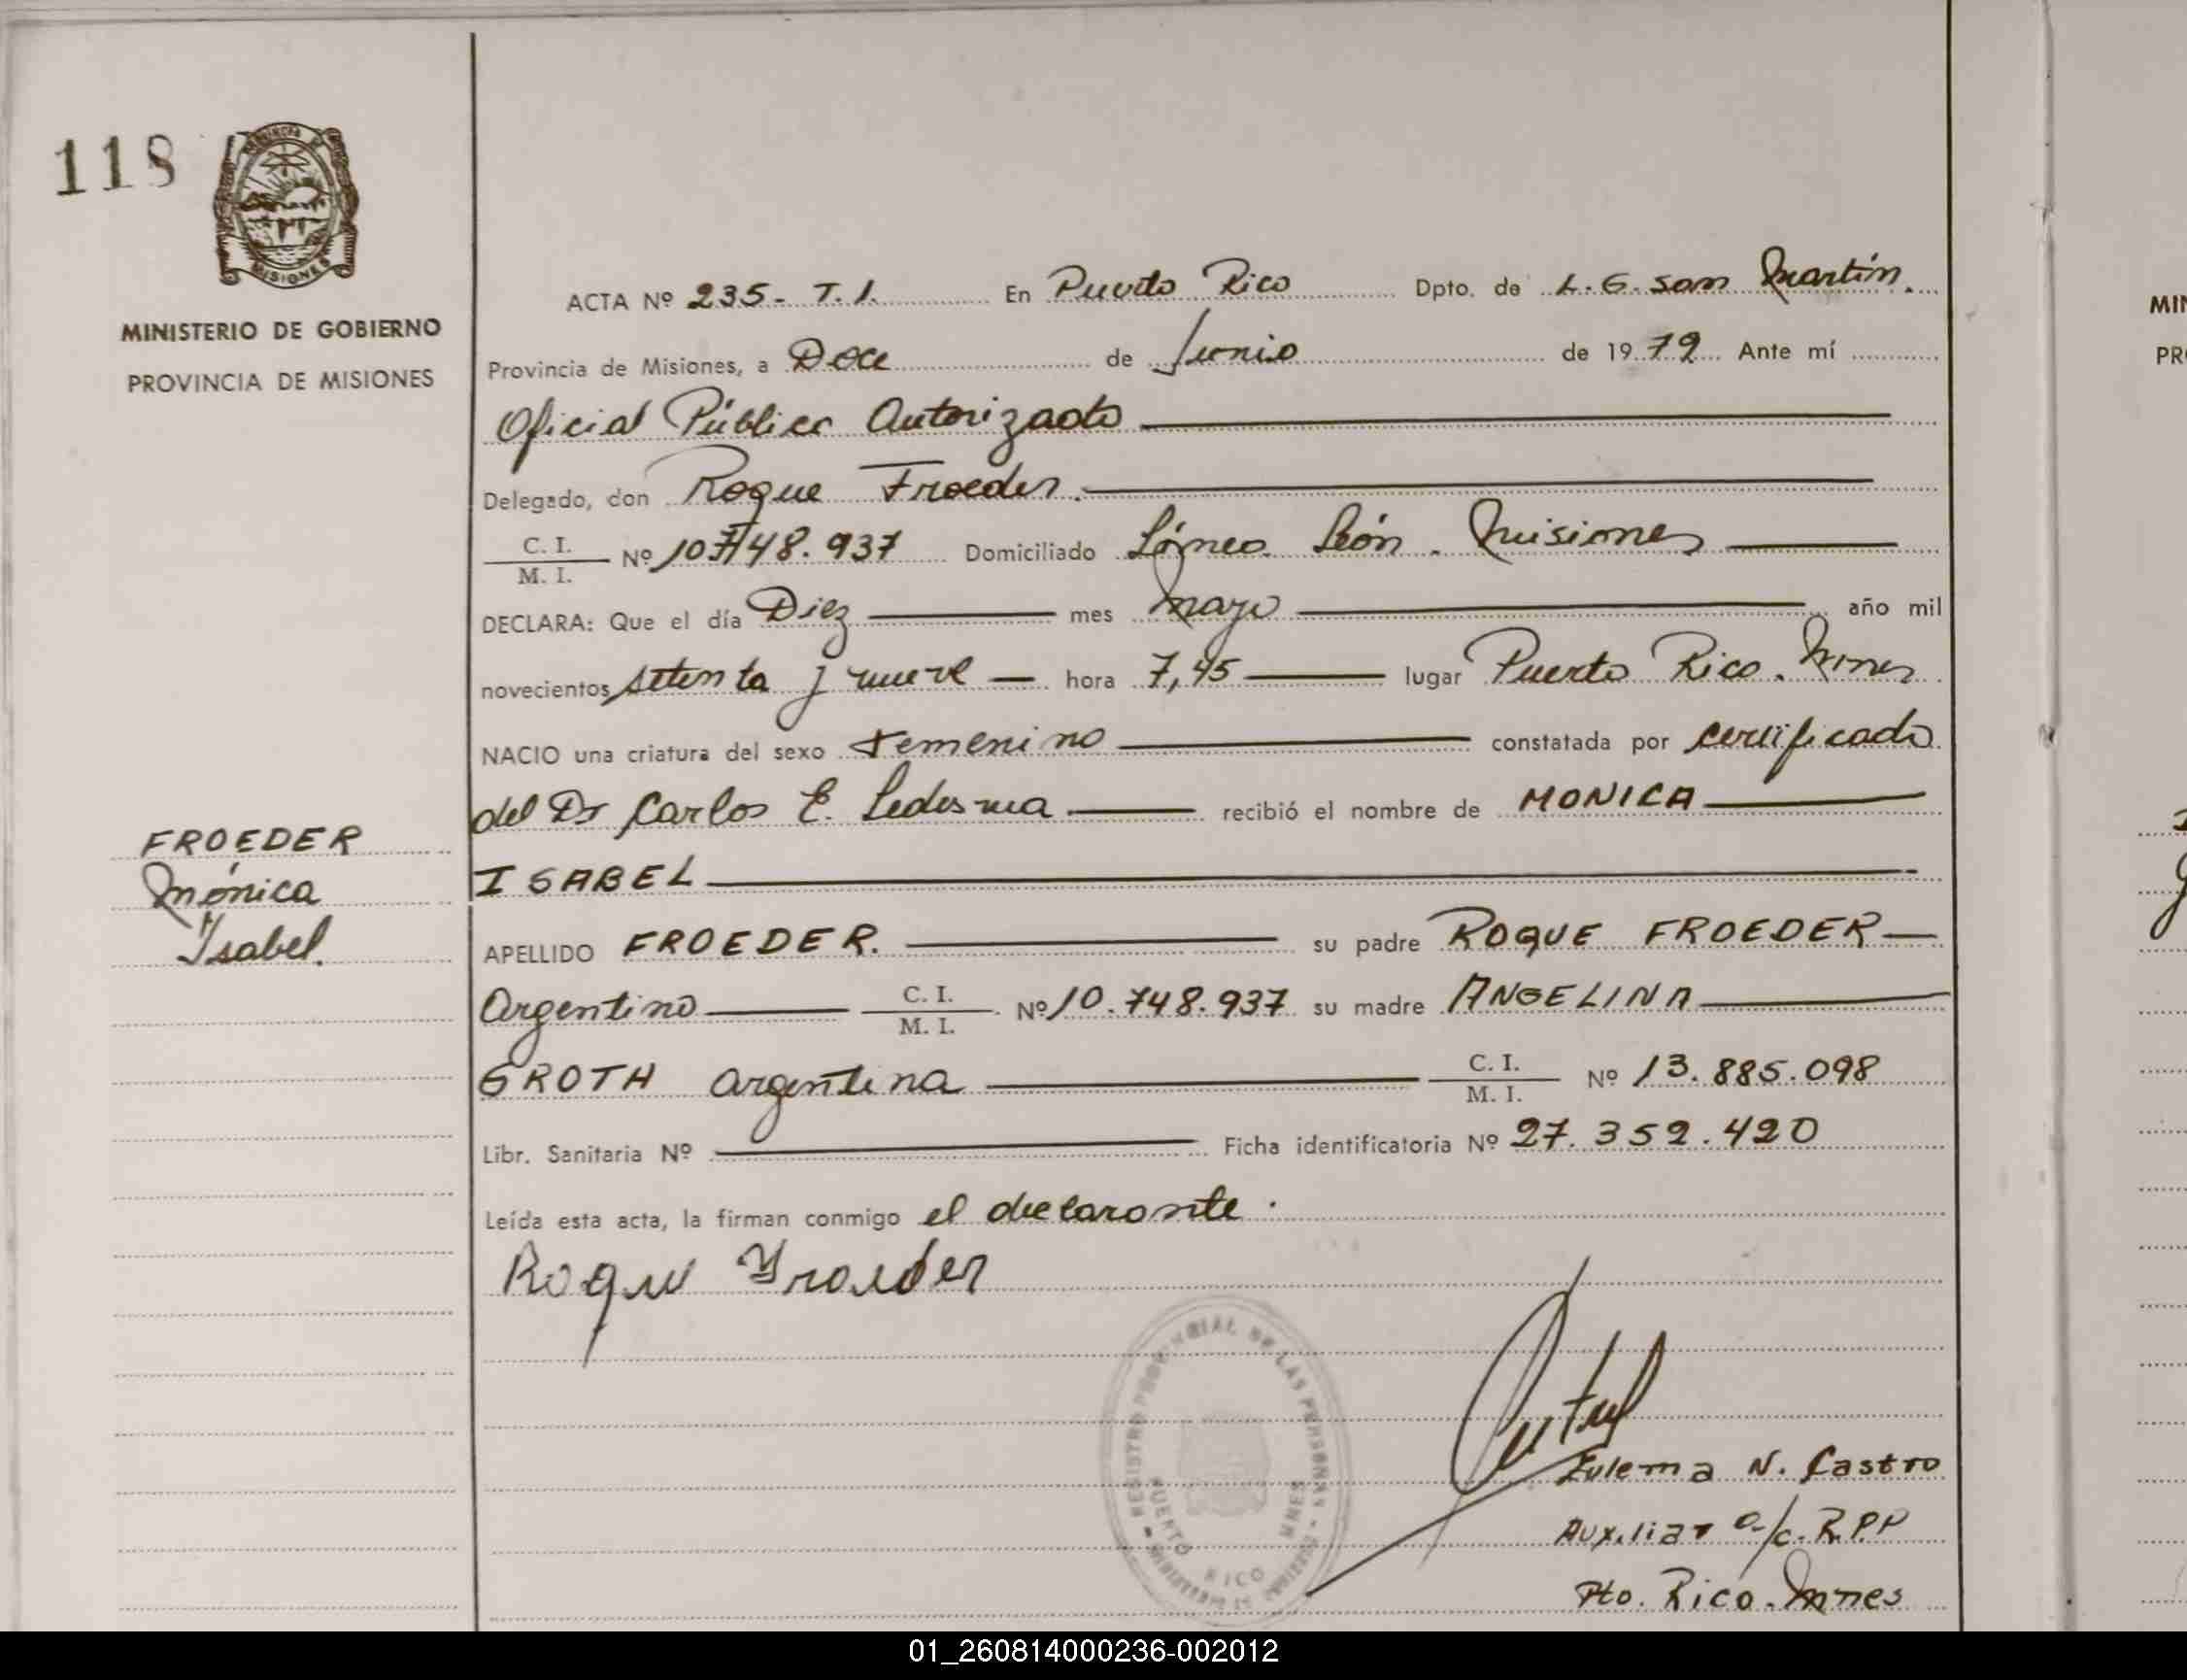 118
MISIONES
MINISTERIO DE GOBIERNO
PROVINCIA DE MISIONES
FROEDER
Mónica
Isabel.
ACTA Nº 235- T. I. En Puerto Rico Dpto. de L. G. San Martín.
Provincia de Misiones, a Doce de Junio de 1979 Ante mí
Oficial Público Autorizado
Delegado, don Roque Froeder.
C. I. / M. I. Nº 10748.937 Domiciliado Línea León. Misiones
DECLARA: Que el día Diez mes Mayo año mil
novecientos setenta y nueve hora 7,45 lugar Puerto Rico. Mnes
NACIO una criatura del sexo Femenino constatada por certificado
del Dr Carlos E. Ledesma recibió el nombre de MONICA
ISABEL
APELLIDO FROEDER. su padre ROQUE FROEDER
Argentino C. I. / M. I. Nº 10.748.937 su madre ANGELINA
GROTH argentina C. I. / M. I. Nº 13.885.098
Libr. Sanitaria Nº Ficha identificatoria Nº 27.352.420
Leída esta acta, la firman conmigo el declarante.
Roque Froeder
REGISTRO PROVINCIAL DE LAS PERSONAS
PUERTO RICO MNES
Zulema N. Castro
Auxiliar a/c. R.P.P
Pto. Rico. Mnes
MIN
PR
01_260814000236-002012